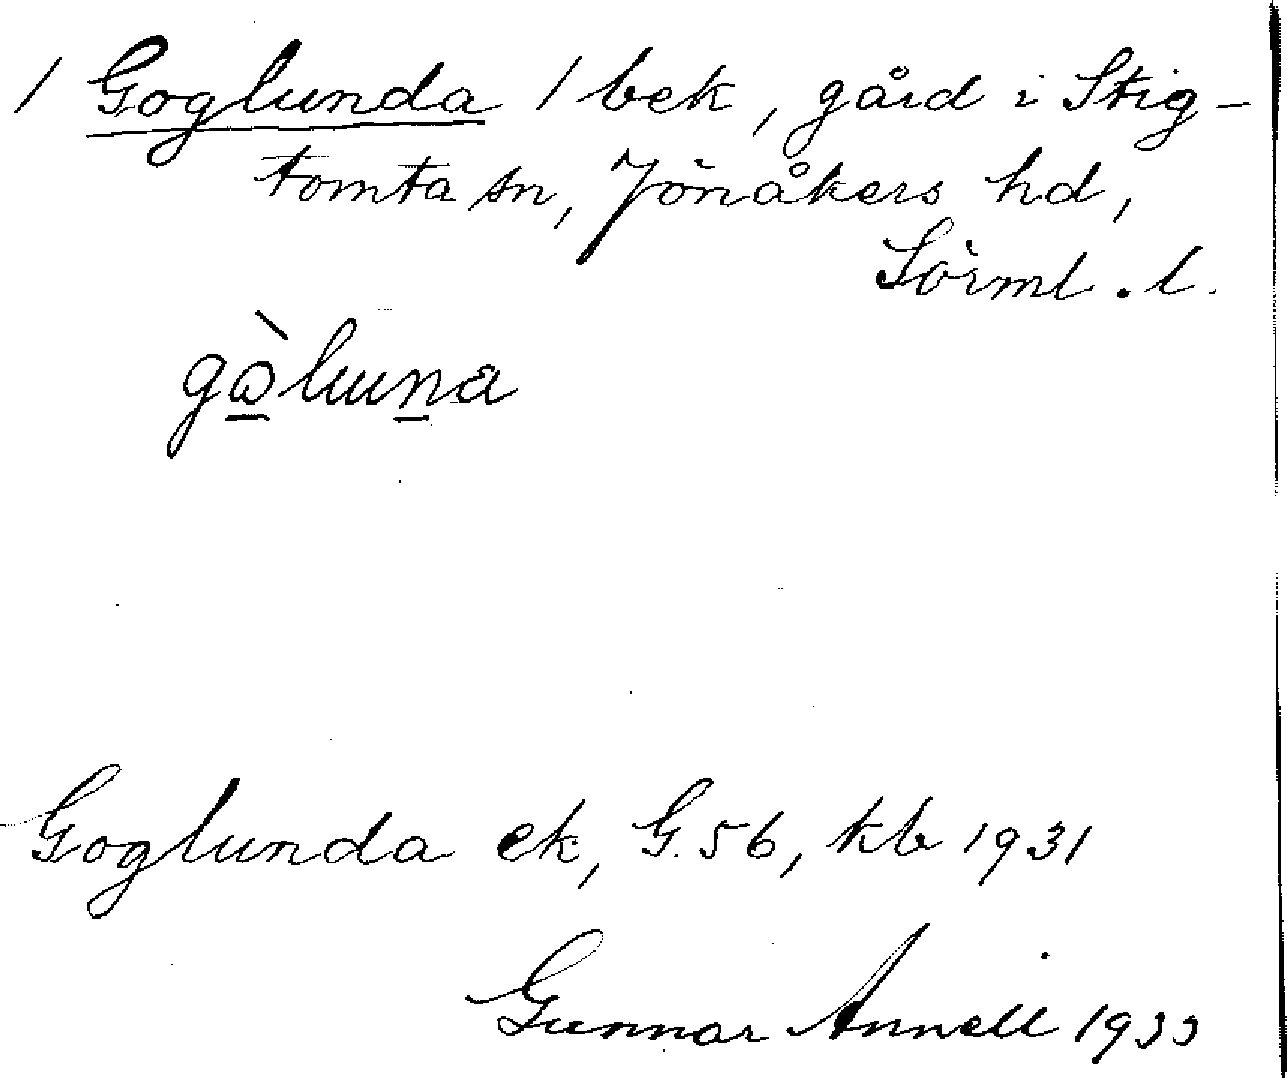 / Goglunda / bek, gård i Stig-
tomta sn, Jönåkers hd,
Sörml. l.
gò̱luṉa
Goglunda ek, G. 56, kb 1931
Gunnar Annell 1933